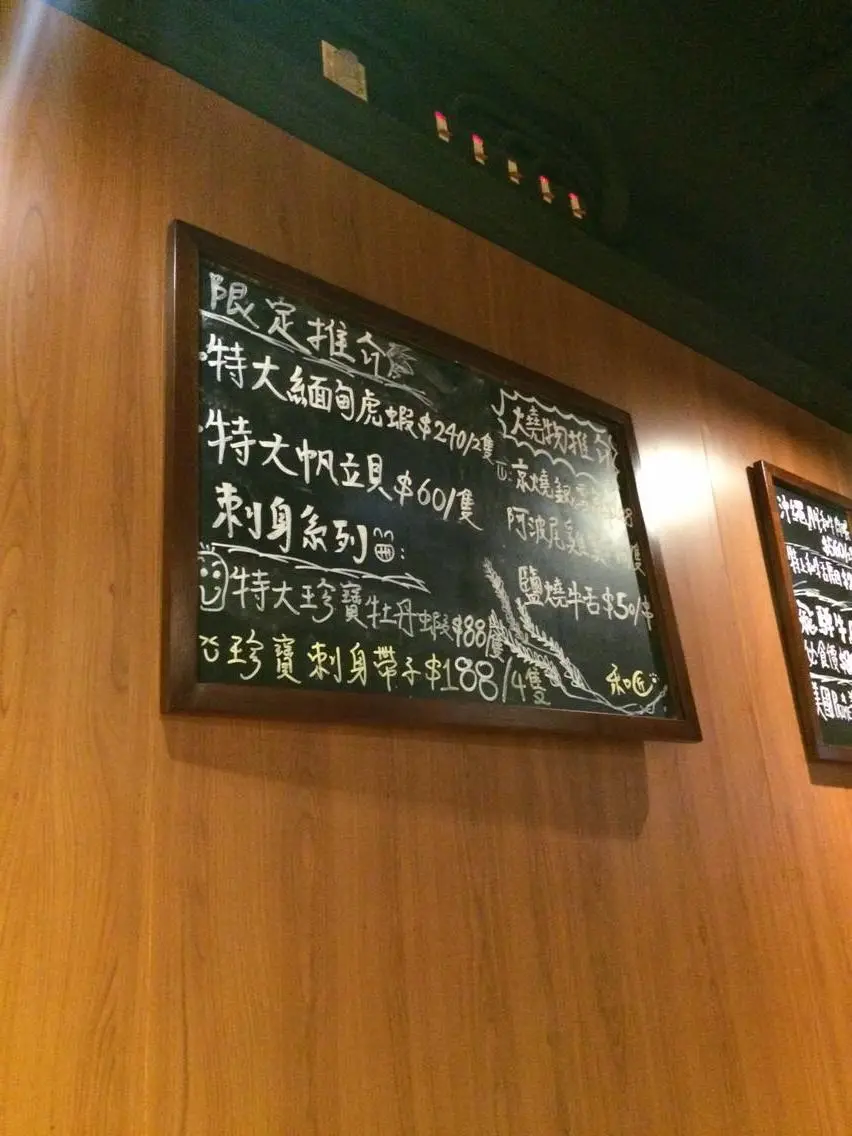 限定推介
特大緬甸虎蝦$240/2隻
特大帆立貝$60/隻
刺身系列:
特大珍寶牡丹蝦$88/隻
珍寶刺身帶子$188/4隻
燒物推介
京燒銀
阿波尾雞
鹽燒牛舌$50/串
和匠
沖繩
$560/
特上和牛
飛騨牛
飲食價
美國Prime